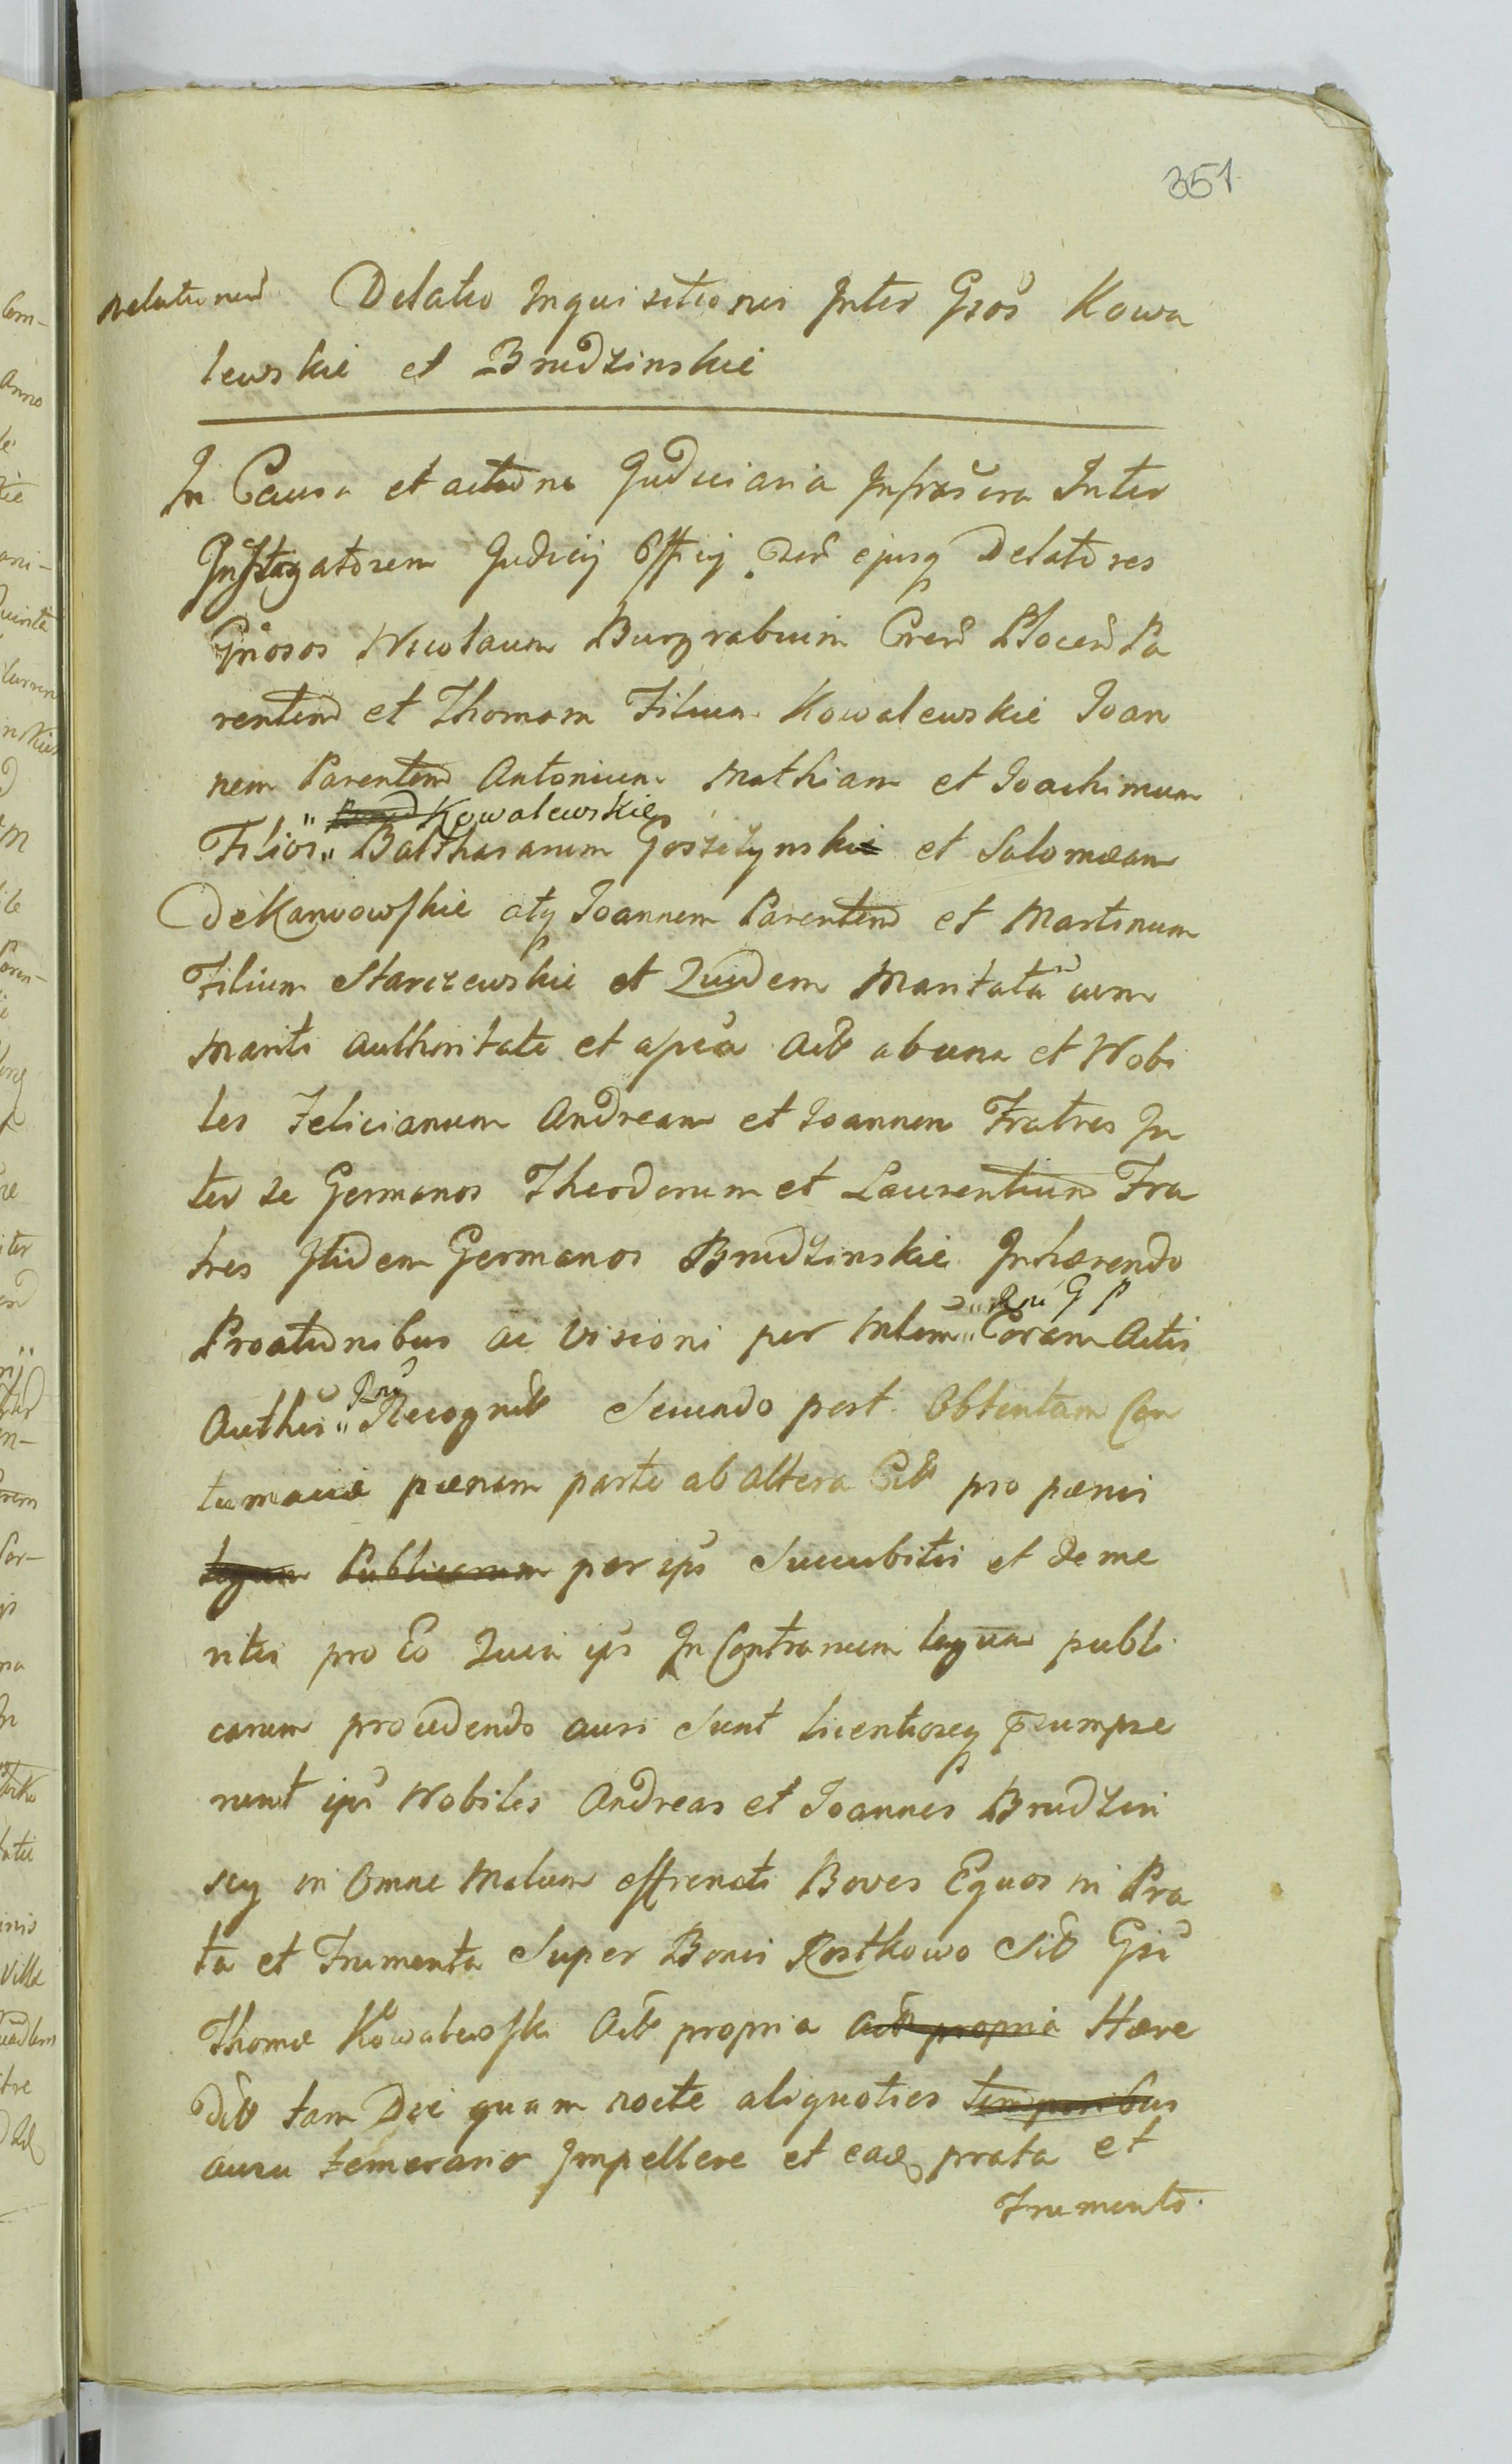 351
Relationum Delatio Inquisitionis Inter Gsos Kowa
lewskie et Brudzinskie
In Causa et actione Judiciaria Infrascra Inter
Instigatorem Judicij Officij ejusq Delatores
Gnosos Nicolaum Burgrabium Cren Plocen Pa
rentem et Thomam Filium Kowalewskie Joan
nem Parentem Antonium Mathiam et Joachimum
Kowalewskie
Filios Balthasarum Goszczynski et Salomeam
Dekanowskie atq Joannem Parentem et Martinum
Filium Starczewskie et Quidem Maritata cum
Mariti Authoritate et apria Act ab una et Nobi
les Felicianum Andream et Joannem Fratres In
ter se Germanos Theodorum et Laurentium Fra
tres Itidem Germanos Brudzinskie Inhærendo
Rni G P
Proationibus ac Visioni per Mlem Coram Actis
Rni
Authis Recognit Secundo post Obtentam Con
tumaciæ pænam parte ab altera Cit pro pænis
legum Publicarum per ips Succubitis et deme
ritis pro Eo Quia ips In Contrarium legum publi
carum procedendo ausi sunt licentioseq psumpse
runt ips Nobiles Andreas et Joannes Brudzin
scy in Omne Malum effrenati Boves Equos in Pra
ta et Frumenta Super Bonis Rostkowo Sit Gsi
Thomæ Kowalewski Act propria act propria Hære
dit tam Die quam nocte aliquoties temporibus
ausu temerario Impellere et eadq prata et
Frumenta